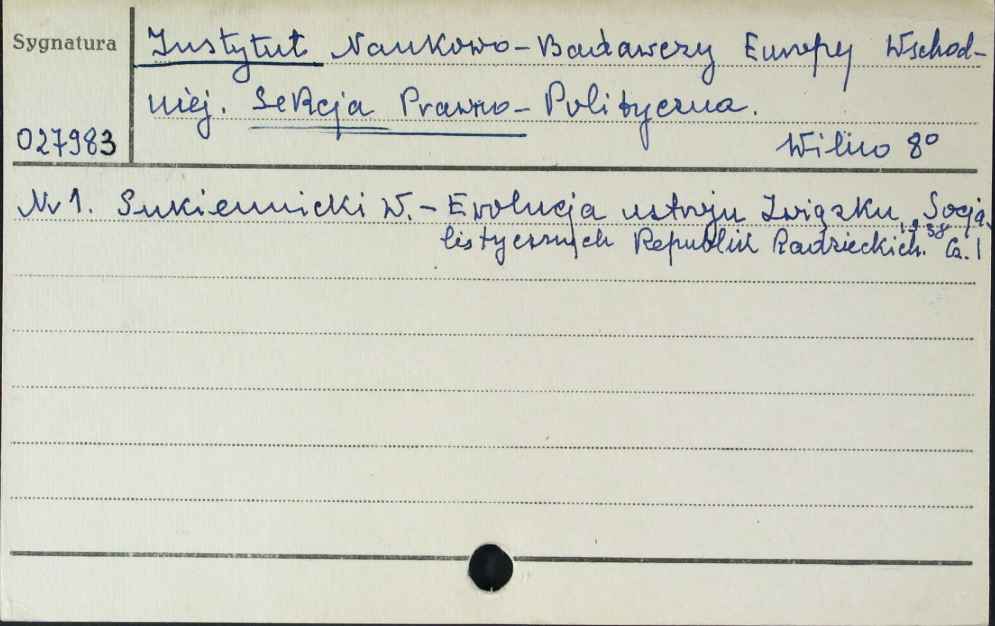 Sygnatura
Instytut Naukowo-Badawczy Europy Wschod-
niej. Sekcja Prawno-Polityczna.
027983
Wilno 8°
Nr 1. Sukiennicki W. - Ewolucja ustroju Związku Socja-
listycznych Republik Radzieckich. 1938 Cz. I